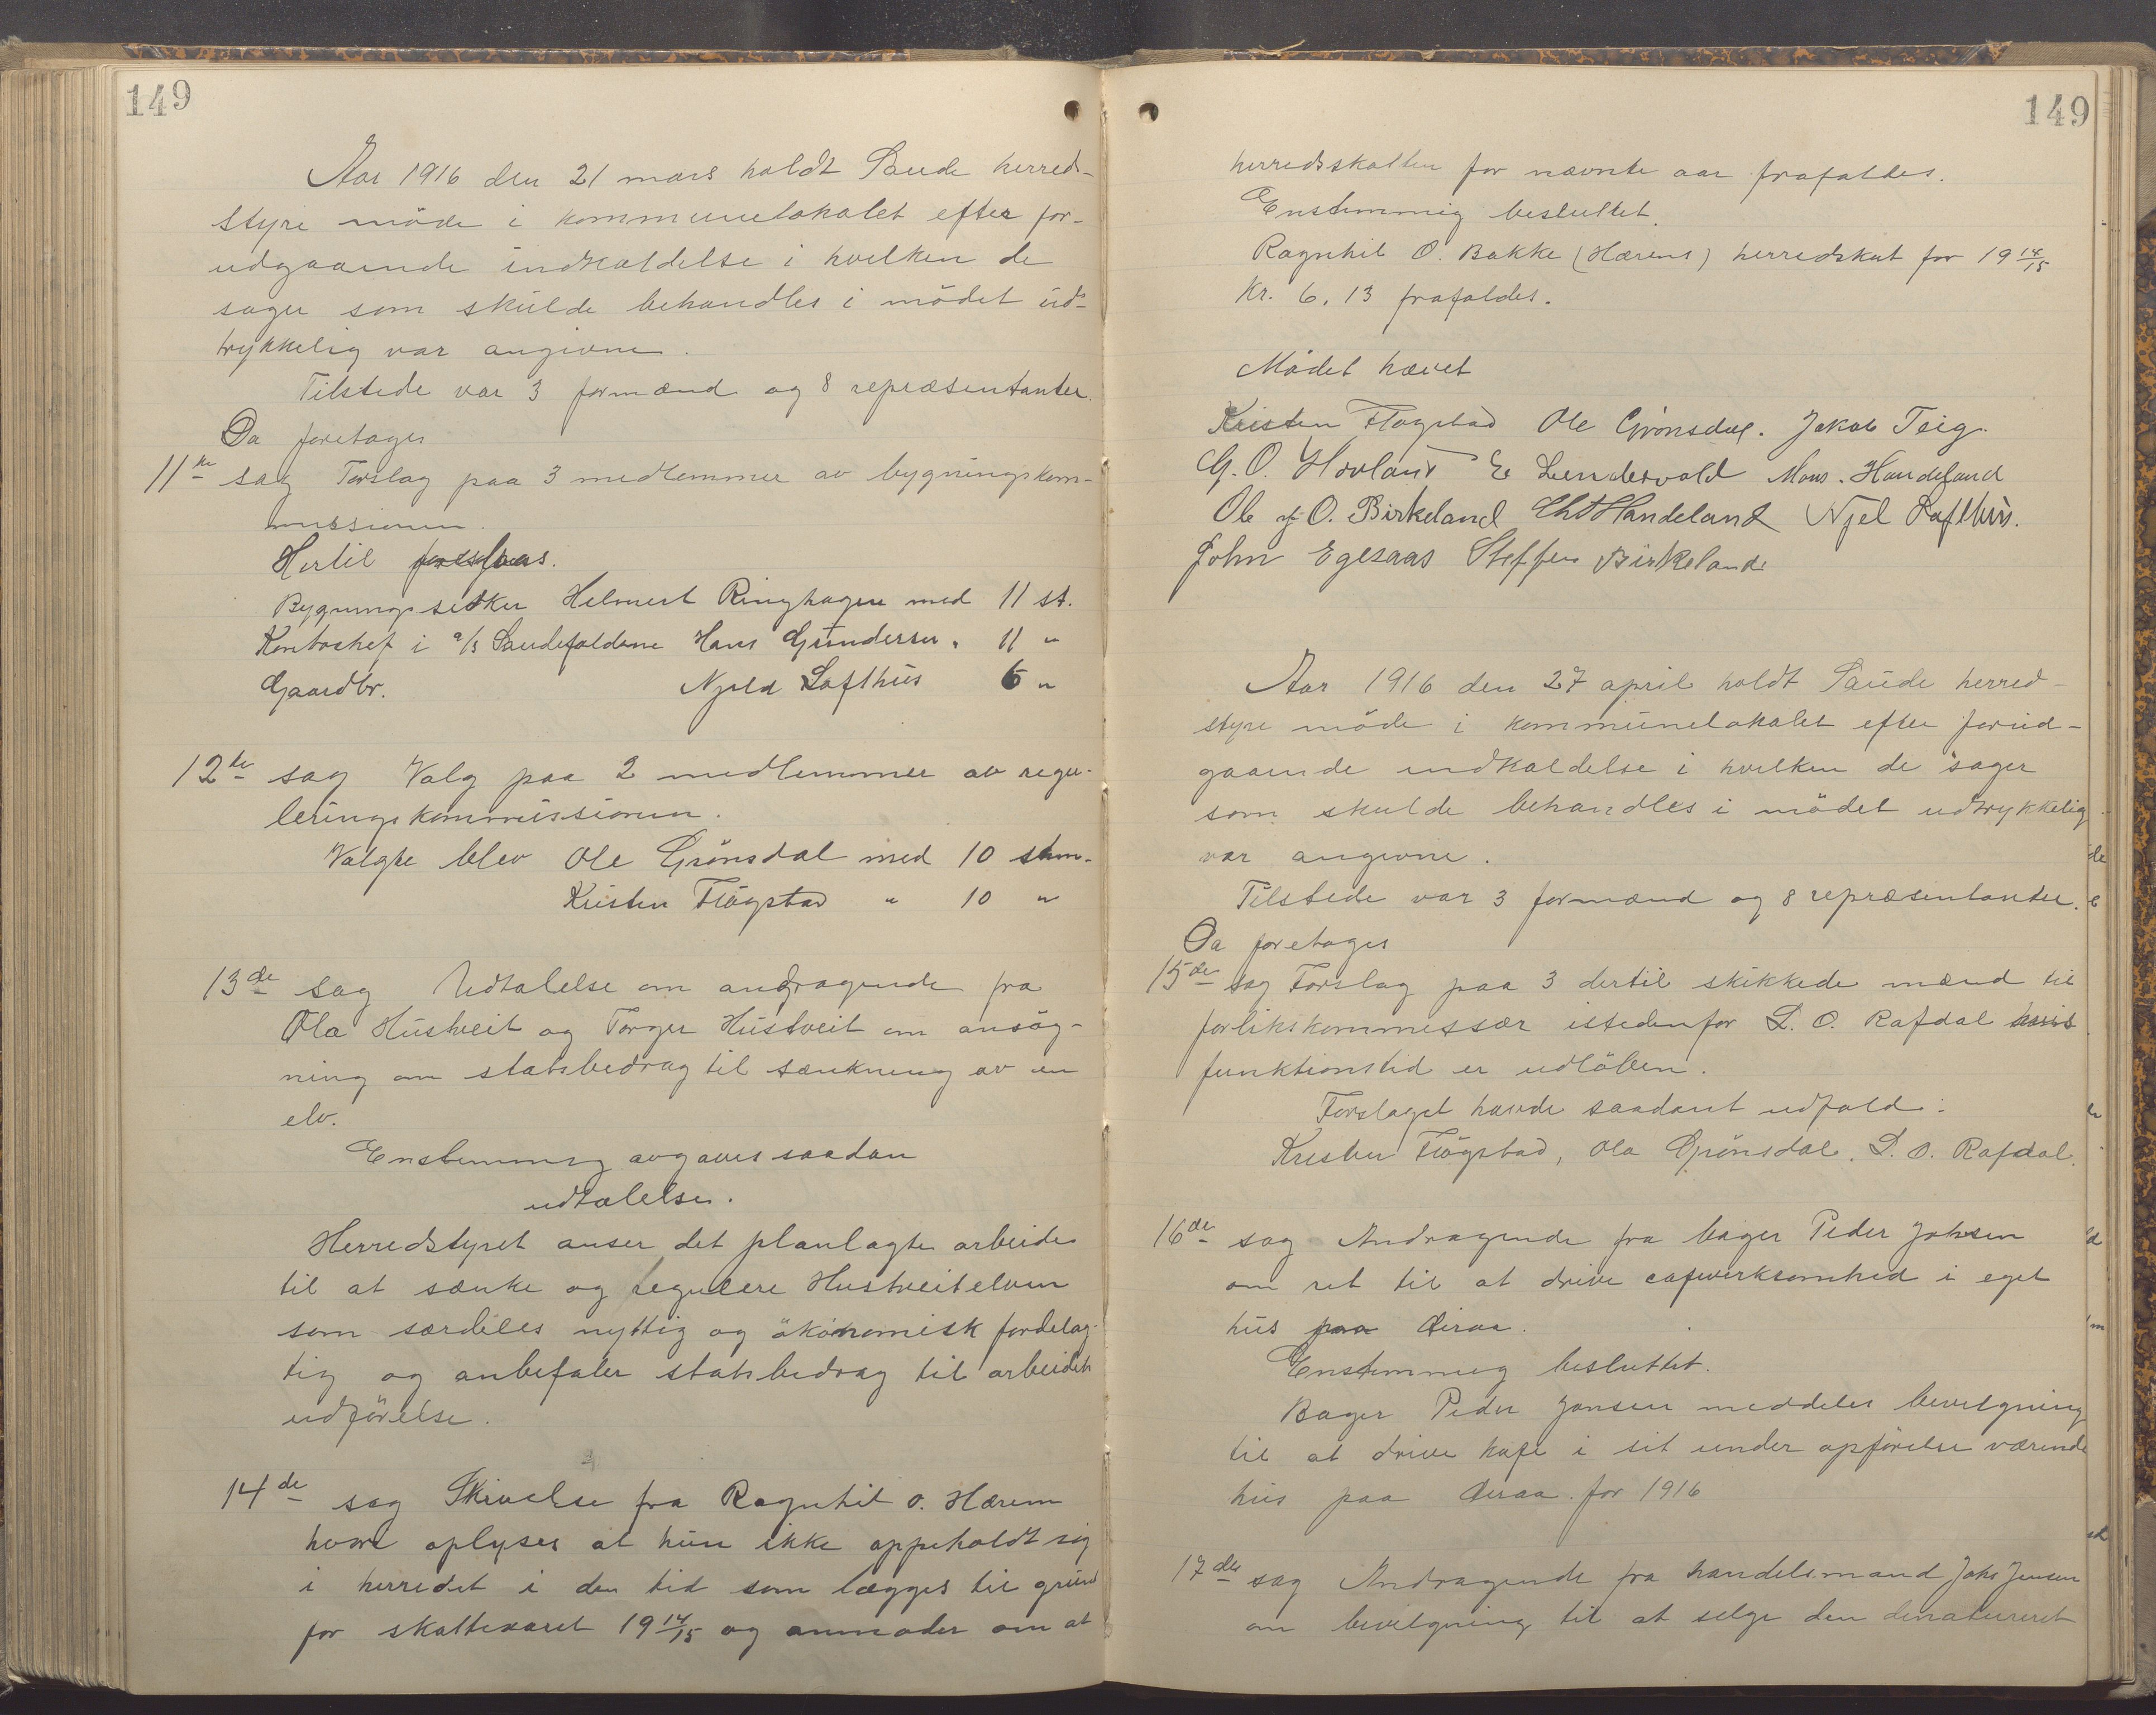 149
Aar 1916 den 21 mars holdt Saude herreds-
styre möde i kommunelokalet efter for-
udgaaende indkaldelse i hvilken de
sager som skulde behandles i mödet ud-
trykkelig var angivne.
Tilstede var 3 formænd og 8 repræsentanter.
Da foretages
11te sag Forslag paa 3 medlemmer av bygningskom-
missionen.
Hertil foreslaas.
Bygningssetker Helmert Ringhagen med 11 st.
Kontorchef i a/s Saudefaldene Hans Gundersen " 11 "
Gaardbr. Njeld Lofthus 6 "
12te sag Valg paa 2 medlemmer av regu-
leringskommissionen.
Valgte blev Ole Grönsdal med 10 stm.
Kristen Flögstad " 10 "
13de sag Udtalelse om andragende fra
Ola Hustveit og Torger Hustveit om ansög-
ning om statsbedrag til sænkning av en
elv.
Enstemmig avgaves saadan
udtalelse.
Herredstyret anser det planlagte arbeide
til at sænke og regulere Hustveitelven
som særdeles nyttig og ökonomisk fordelag-
tig og anbefaler statsbedrag til arbeidets
udförelse.
14de sag Skrivelse fra Ragnhil O. Hærem
hvori oplyses at hun ikke oppeholdt sig
i herredet i den tid som lægges til grund
for skatteaaret 19 14/15 og anmoder om at
149
herredsskatten for nævnte aar frafaldes.
Enstemmig besluttet.
Ragnhil O. Bakke (Hærens) herredskat for 19 14/15
Kr. 6,13 frafaldes.
Mödet hævet
Kristen Flögstad Ole Grönsdal. Jakob Teig.
G. O. Hovland E Lundervold Mons. Handeland
Ole O. Birkeland Chr Handeland Njel Lofthus.
John Egesaas Steffen Birkeland
Aar 1916 den 27 april holdt Saude herred-
styre möde i kommunelokalet efter forud-
gaaende indkaldelse i hvilken de sager
som skulde behandles i mödet udtrykkelig
var angivne.
Tilstede var 3 formænd og 8 repræsentanter.
Da foretages
15de sag Forslag paa 3 dertil skikkede mænd til
forlikskommessær istedenfor L. O. Rafdal hvis
funktionstid er udlöben.
Forslaget havde saadant udfald:
Kristen Flögstad, Ola Grönsdal, L. O. Rafdal.
16de sag Andragende fra bager Peder Johsen
om ret til at drive cafeverksomhed i eget
hus paa Øiraa.
Enstemmig besluttet.
Bager Peder Jonsen meddeles bevilgning
til at drive kafe i sit under opförelse værende
hus paa Øiraa for 1916
17de sag Andragende fra handelsmand Johs Jensen
om bevilgning til at selge den denatureret